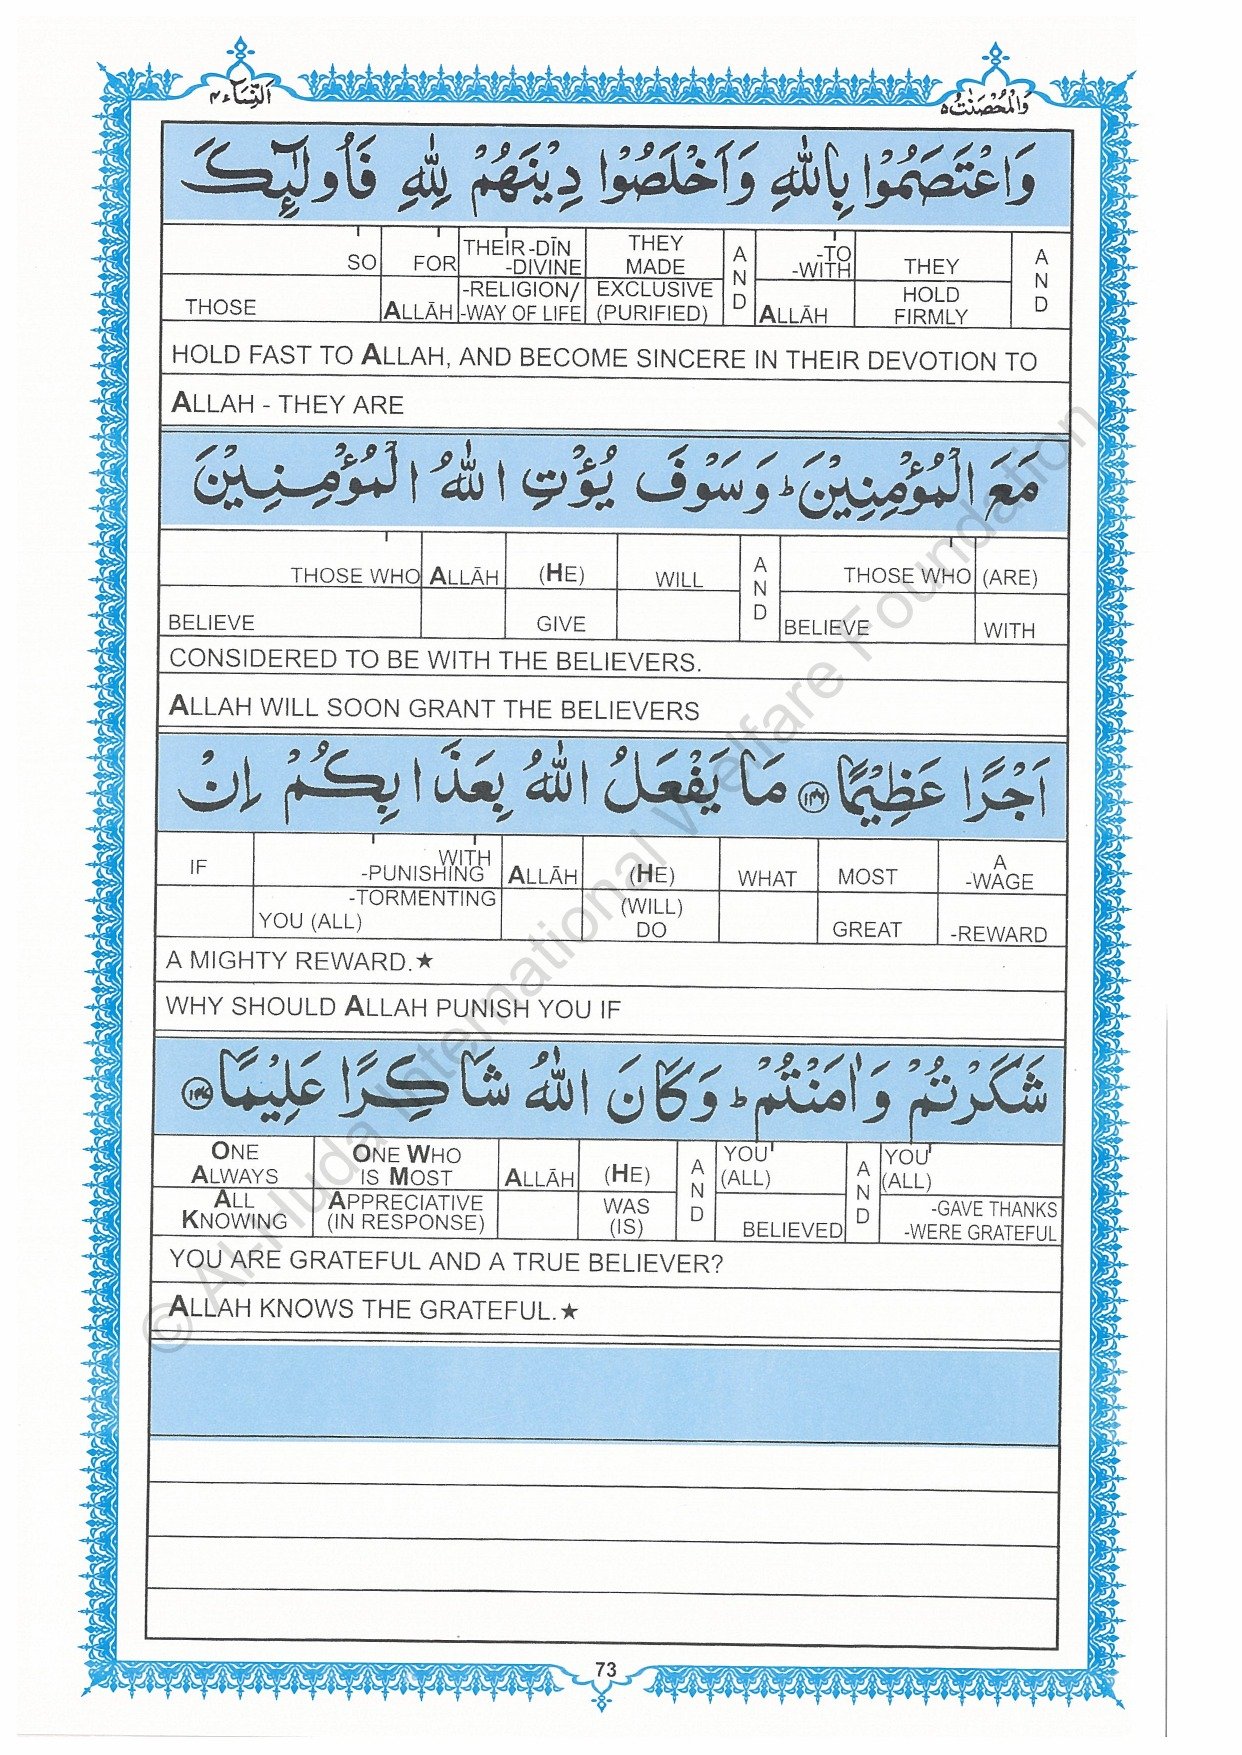 اَلنِّسَآء ۴
وَالْمُحْصَنٰتُ ۵
وَاعْتَصَمُوْا بِاللّٰهِ وَاَخْلَصُوْا دِیْنَهُمْ لِلّٰهِ فَاُولٰٓئِكَ
SO THOSE | FOR ALLĀH | THEIR -DĪN -DIVINE -RELIGION/ -WAY OF LIFE | THEY MADE EXCLUSIVE (PURIFIED) | AND | -TO -WITH ALLĀH | THEY HOLD FIRMLY | AND
HOLD FAST TO ALLAH, AND BECOME SINCERE IN THEIR DEVOTION TO
ALLAH - THEY ARE
مَعَ الْمُؤْمِنِیْنَ ؕ وَسَوْفَ یُؤْتِ اللّٰهُ الْمُؤْمِنِیْنَ
THOSE WHO BELIEVE | ALLĀH | (HE) GIVE | WILL | AND | THOSE WHO BELIEVE | (ARE) WITH
CONSIDERED TO BE WITH THE BELIEVERS.
ALLAH WILL SOON GRANT THE BELIEVERS
اَجْرًا عَظِیْمًا ۱۴۶ مَا یَفْعَلُ اللّٰهُ بِعَذَابِكُمْ اِنْ
IF | WITH -PUNISHING -TORMENTING YOU (ALL) | ALLĀH | (HE) (WILL) DO | WHAT | MOST GREAT | A -WAGE -REWARD
A MIGHTY REWARD.★
WHY SHOULD ALLAH PUNISH YOU IF
شَكَرْتُمْ وَاٰمَنْتُمْ ؕ وَكَانَ اللّٰهُ شَاكِرًا عَلِیْمًا ۱۴۷
ONE ALWAYS ALL KNOWING | ONE WHO IS MOST APPRECIATIVE (IN RESPONSE) | ALLĀH | (HE) WAS (IS) | AND | YOU (ALL) BELIEVED | AND | YOU (ALL) -GAVE THANKS -WERE GRATEFUL
YOU ARE GRATEFUL AND A TRUE BELIEVER?
ALLAH KNOWS THE GRATEFUL.★
73
© Al-Huda International Welfare Foundation